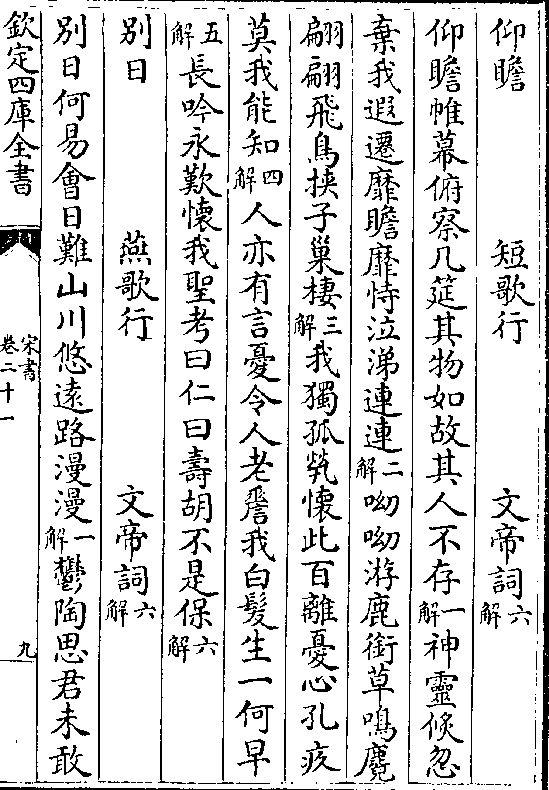 仰瞻　短歌行　文帝詞六解
仰瞻帷幕俯察几筵其物如故其人不存一解神靈倐忽
棄我遐遷靡瞻靡恃泣涕連連二解呦呦游鹿銜草鳴麑
翩翩飛鳥挾子巢棲三解我獨孤煢懷此百離憂心孔疚
莫我能知四解人亦有言憂令人老嗟我白髮生一何早
五解長吟永歎懷我聖考曰仁曰壽胡不是保六解
別日　燕歌行　文帝詞六解
別日何易會日難山川悠遠路漫漫一解鬱陶思君未敢
欽定四庫全書
宋書
卷二十一
九